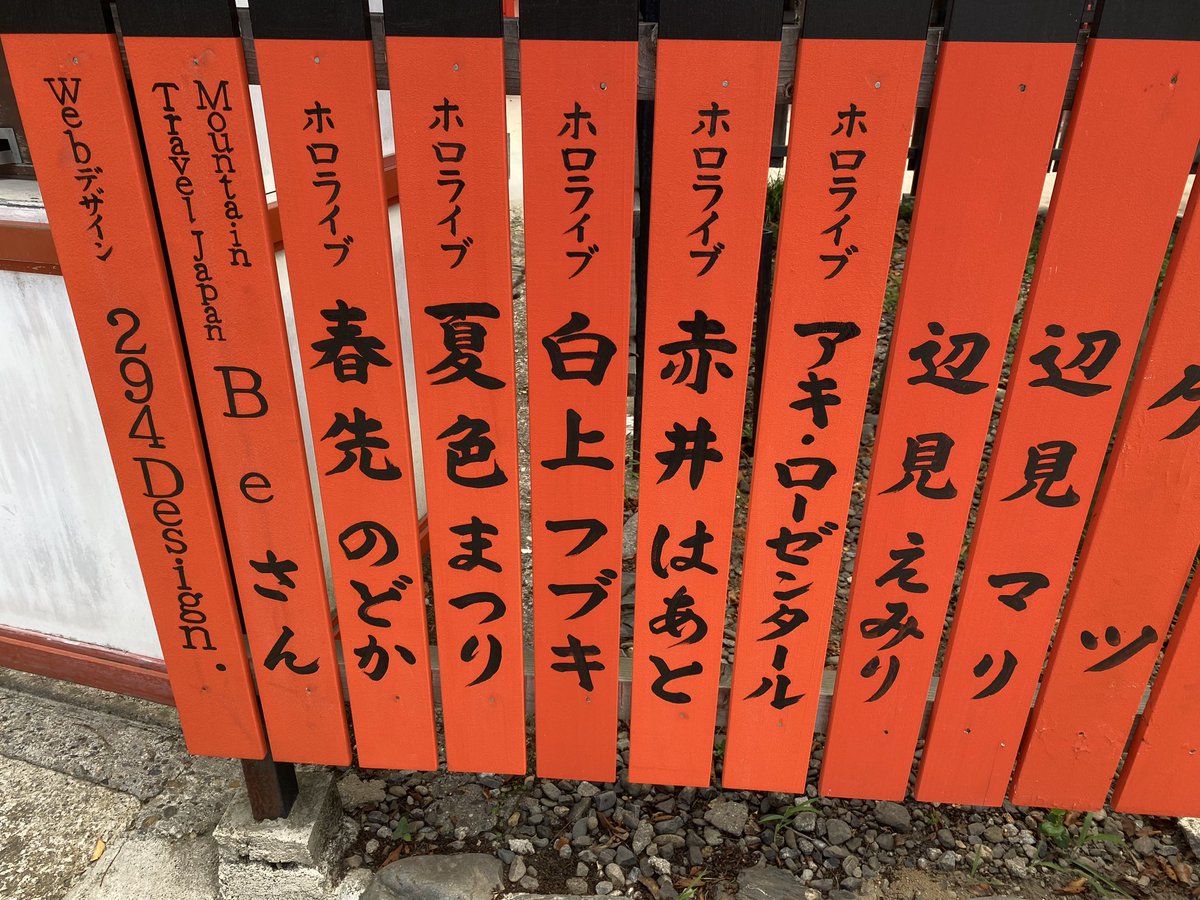 辺見マリ
辺見えみり
ホロライブ アキ・ローゼンタール
ホロライブ 赤井はあと
ホロライブ 白上フブキ
ホロライブ 夏色まつり
ホロライブ 春先のどか
Mountain
Travel Japan
Beさん
Webデザイン 294Design.